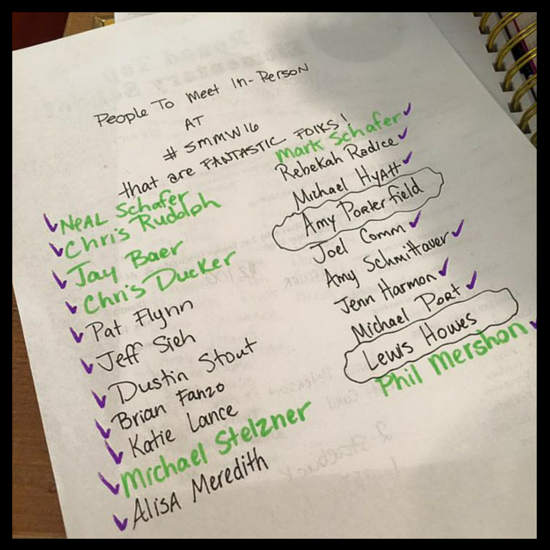 People To Meet In-Person
AT
# SMMW16
that are FANTASTIC FOLKS!
NEAL Schafer
Chris Rudolph
Jay Baer
Chris Ducker
Pat Flynn
Jeff Sieh
Dustin Stout
Brian Fanzo
Katie Lance
Michael Stelzner
Alisa Meredith
Mark Schafer
Rebekah Radice
Michael Hyatt
Amy Porterfield
Joel Comm
Amy Schmittauer
Jenn Harmon
Michael Port
Lewis Howes
Phil Mershon